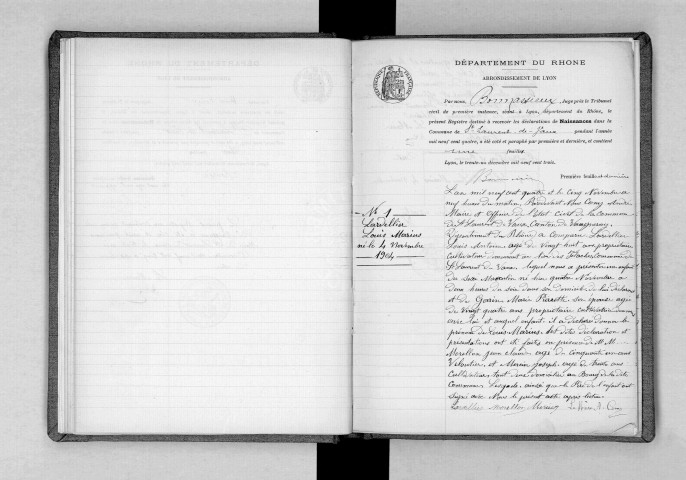 DÉPARTEMENT DU RHONE
ARRONDISSEMENT DE LYON
Par nous, Bonnassieux, Juge près le Tribunal
civil de première instance, séant à Lyon, département du Rhône, le
présent Registre destiné à recevoir les déclarations de Naissances dans la
Commune de St Laurent-de-Vaux pendant l'année
mil neuf cent quatre, a été coté et paraphé par première et dernière, et contient
une feuillet
Lyon, le trente-un décembre mil neuf cent trois.
Première feuille et dernière
No 1
Lardellier
Louis Marius
né le 4 Novembre
1904
L'an mil neuf cent quatre et le cinq Novembre a
neuf heures du matin, Pardevant Nous
Maire et officier de l'état civil de la commune
de St Laurent de Vaux, Canton de Vaugneray,
Département du Rhône, a comparu Lardellier
Louis Antoine, age de vingt huit ans propriétaire
cultivateur demeurant au lieu des commune de
St Laurent de Vaux, lequel nous a présenté un enfant
du sexe Masculin né hier quatre Novembre a
deux heures du soir dans son domicile, de lui déclarant
et de Marie Pierrette son épouse agée
de vingt quatre ans propriétaire cultivatrice
avec lui et auquel enfant, il a déclaré donner le
prénom de Louis Marius. Les dites déclaration et
présentations ont été faites en présence de M.M.
Morellon Jean Claude agé de cinquante un ans
et Joseph, agé de trente ans
Cultivateur, tout deux domiciliés au Bourg de la dite
Commune. Lesquels, ainsi que le Père de l'enfant ont
signé avec Nous le présent acte après lecture
Lardellier Morellon Le Maire